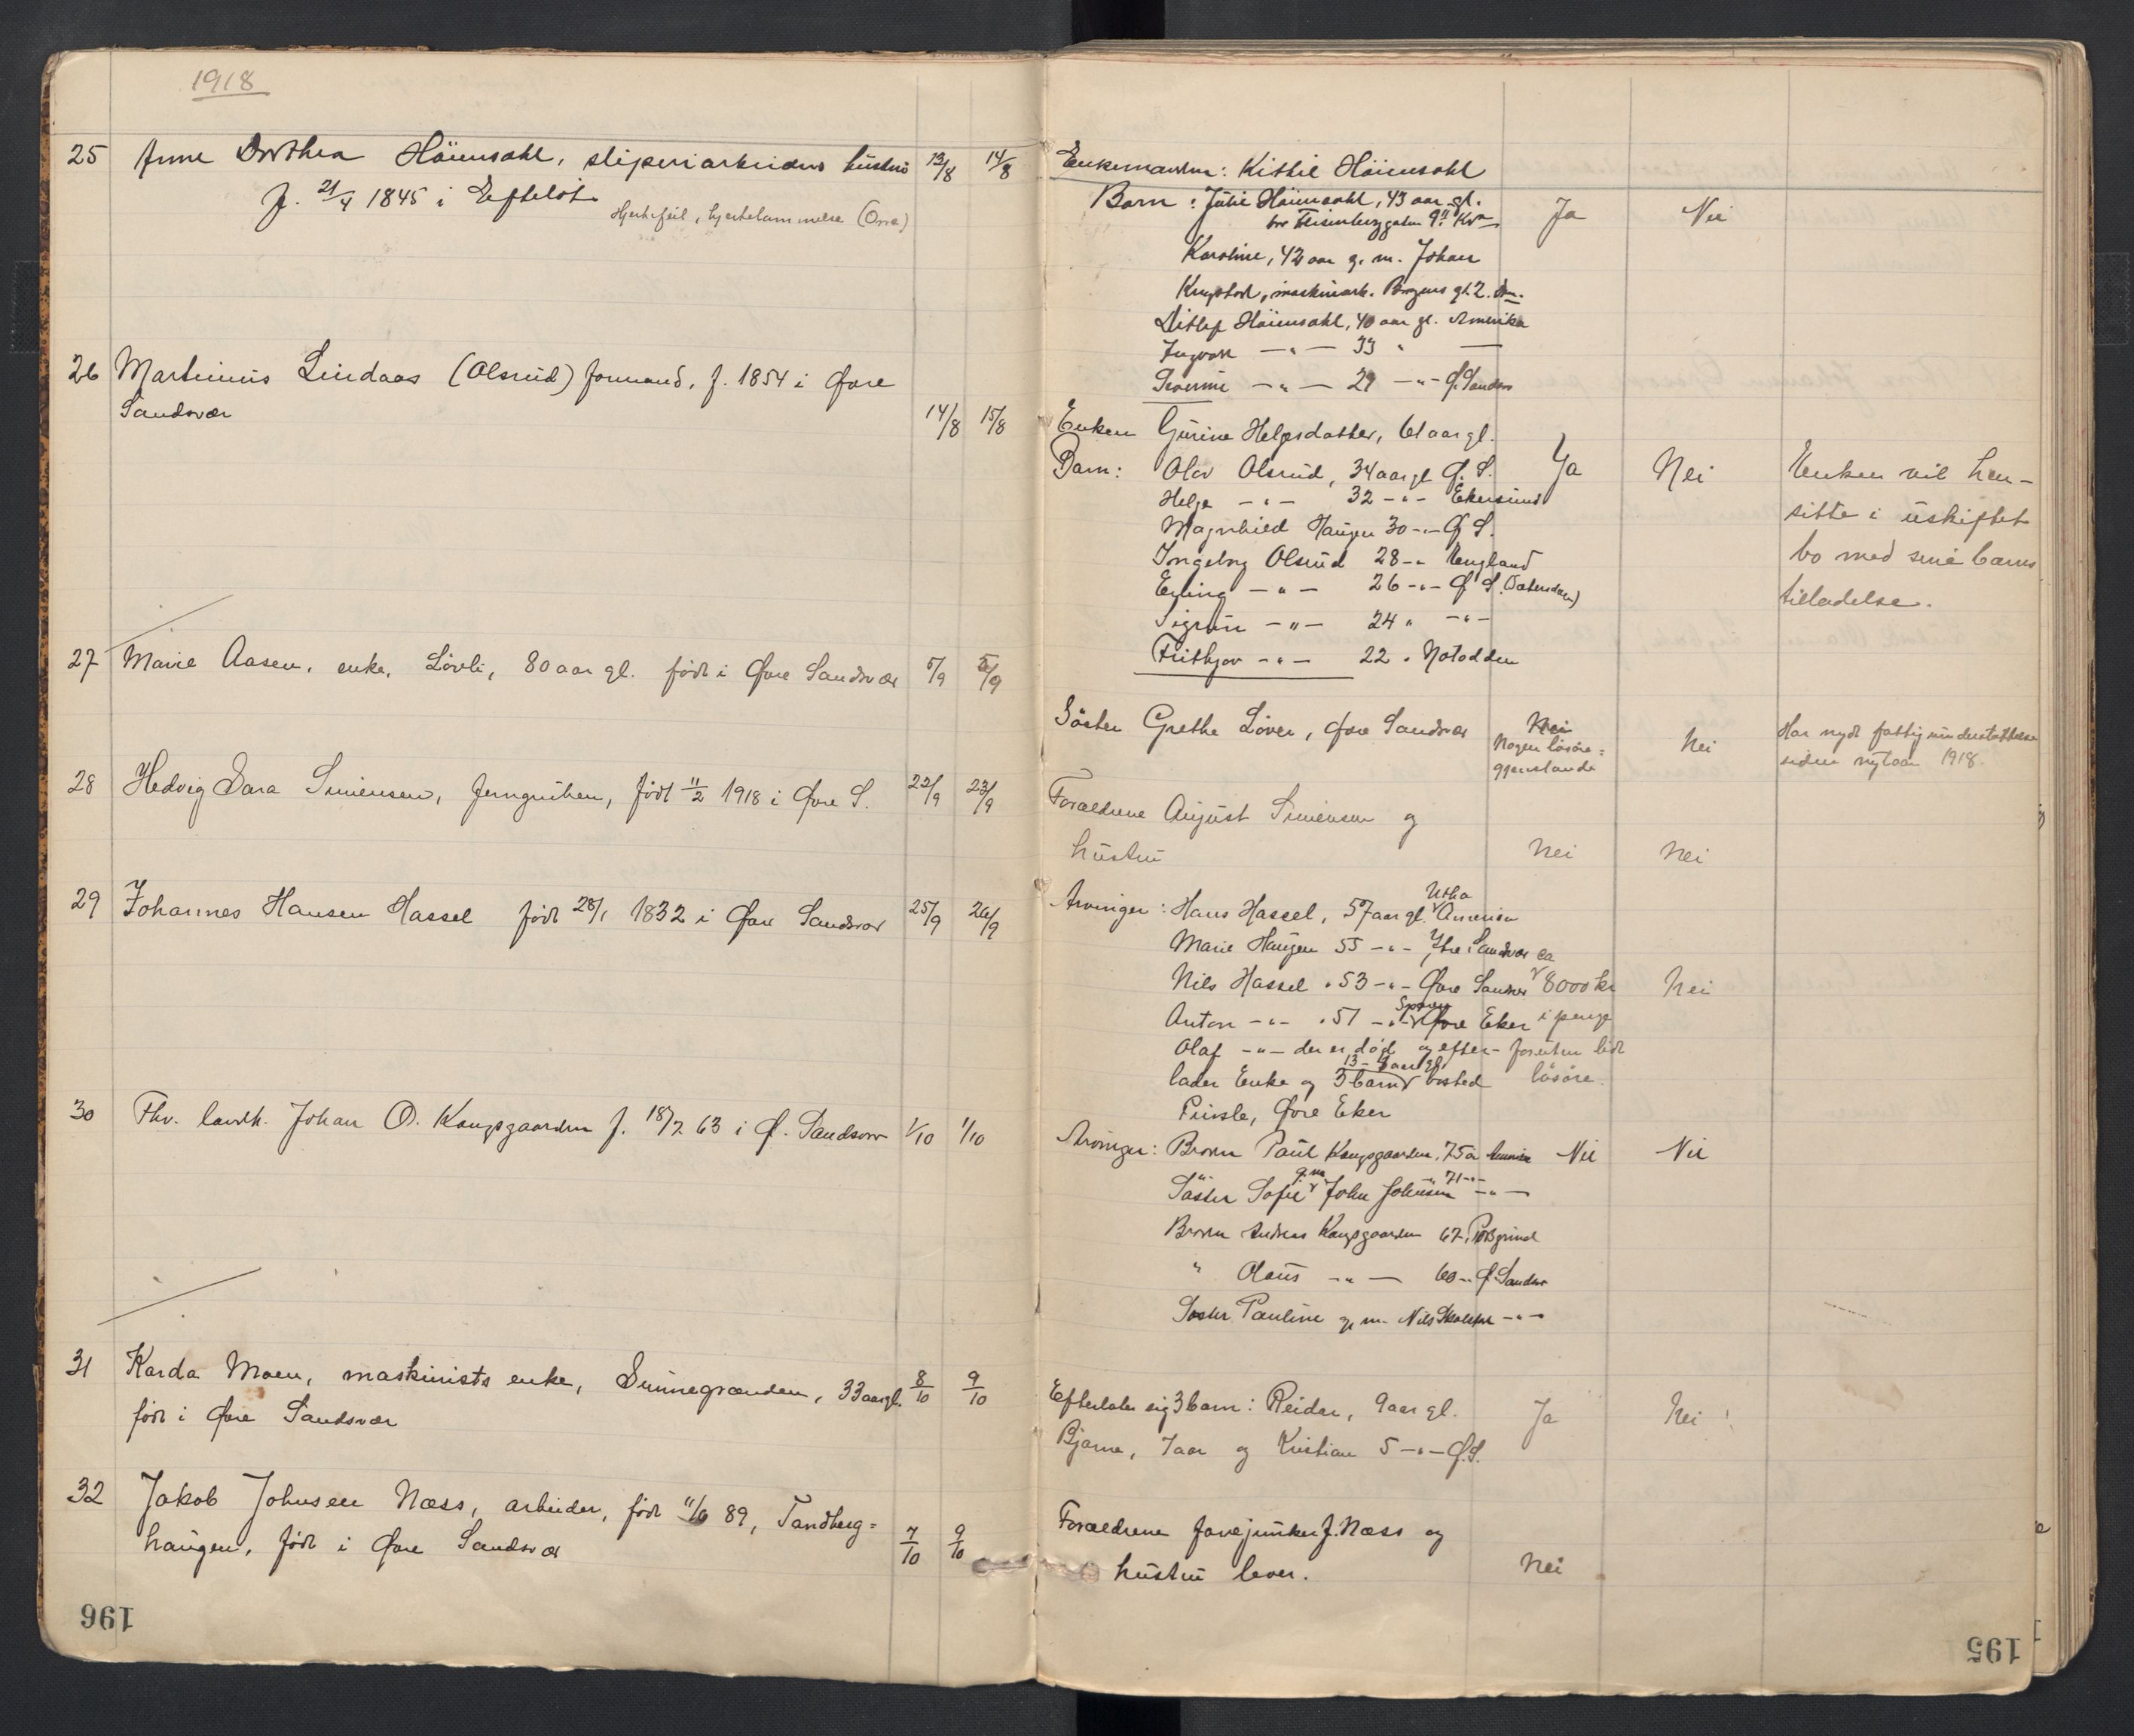 1918
25 Anne Dorthea Höiensahl, sliperiarbeiders hustru 13/8 14/8
f. 21/4 1845 i Efteløt
Hjertefeil, hjertelammelse (Orre)
26 Martinius Lindaas (Olsrud) formand, f. 1854 i Øvre
Sandsvær 14/8 15/8
27 Marie Aasen, enke, Lövli, 80 aar gl. födt i Øvre Sandsvær 5/9 5/9
28 Hedvig Sara Simensen, Jerngruben, födt 11/2 1918 i Øvre S. 22/9 23/9
29 Johannes Hansen Hassel födt 28/1 1832 i Øvre Sandsvær 25/9 26/9
30 Fhv. landh. Johan O. Kongsgaarden f. 18/2 63 i Ø. Sandsvær 1/10 1/10
31 Karda Moen, maskinists enke, Sunnegrænden, 33 aar gl. 8/10 9/10
födt i Øvre Sandsvær
32 Jakob Johnsen Næss, arbeider, födt 11/10 89, Tandberg=
haugen, födt i Øvre Sandsvær 7/10 9/10
196
Enkemanden: Kittil Höiensahl
Barn: Julie Höiensahl, 43 aar gl. Ja Nei
bor
Karoline, 42 aar g. m. Johan
maskinarb. gt. 2.
Ditlef Höiensahl, 40 aar gl. Amerika
Ingvar -"- 33 " —
Severine -"- 29 -"- Ø. Sandsv
Enken Gurine Helgesdatter, 61 aar gl.
Barn: Olav Olsrud, 34 aar gl Ø. S. Ja Nei Enken vil hen-
Helge -"- 32 -"- Ekersund sitte i uskiftet
Magnhild Haugen 30 -"- Ø S. bo med sine barns
Ingeborg Olsrud 28 -" England tilladelse.
Erling -"- 26 -"- Ø S.
Sigrun -"- 24 " -"-
Frithjov -"- 22 " Notodden
Söster Grethe Löver, Øvre Sandsvær Nei Nei Har nydt fattigunderstøttelse
Nogen lösöre= siden nytaar 1918.
gjenstande
Forældrene August Simensen og
hustru Nei Nei
Arvinger: Hans Hassel, 57 aar gl. Utha Amerika
Marie Haugen 55 -"- Ytre Sandsvær ca
Nils Hassel " 53 -"- Øvre Sandsvær 8000 kr Nei
Anton -"- " 51 -"- Øvre Eker i penge
Olaf -"- der er död og efter- foruten lidt
lader Enke og 3 barn 13 - 9 aar gl. bosted lösöre.
Øvre Eker
Arvinger: Broren Paul Kongsgaarden, 75 a Amerika Nei Nei
Söster Sofie g. m. John Johnsen " 71 -"- -"-
Broren Andreas Kongsgaarden 67, Porsgrund
" Olaus -"- 60 -"- Ø. Sandsv
Söster Pauline g. m. Nils -"-
Efterlater sig 3 barn: Reidar, 9 aar gl. Ja Nei
Bjarne, 7 aar og Kristian 5 -"- Ø. S.
Forældrene J. Næss og
hustru lever. Nei
195